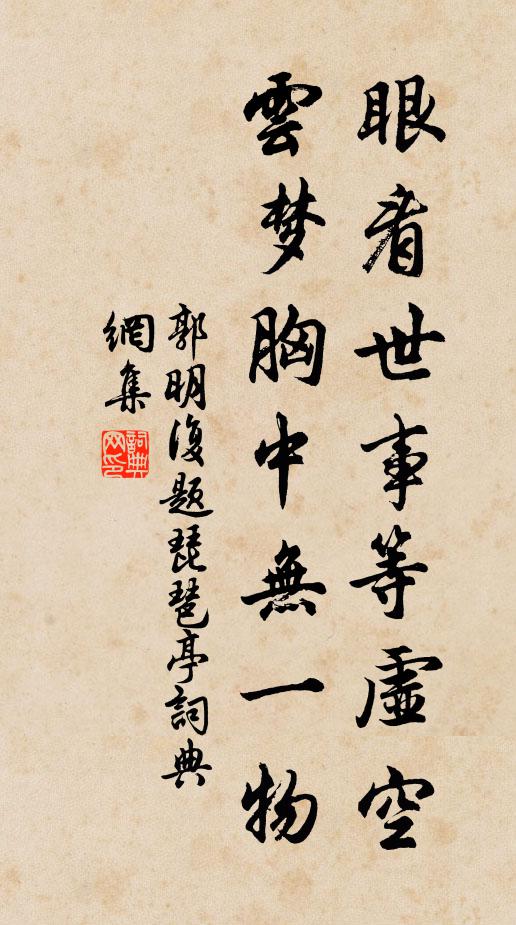 眼看世事等虛空
雲梦胸中無一物
郭明復題琵琶亭詞典
網集
詞典
网印